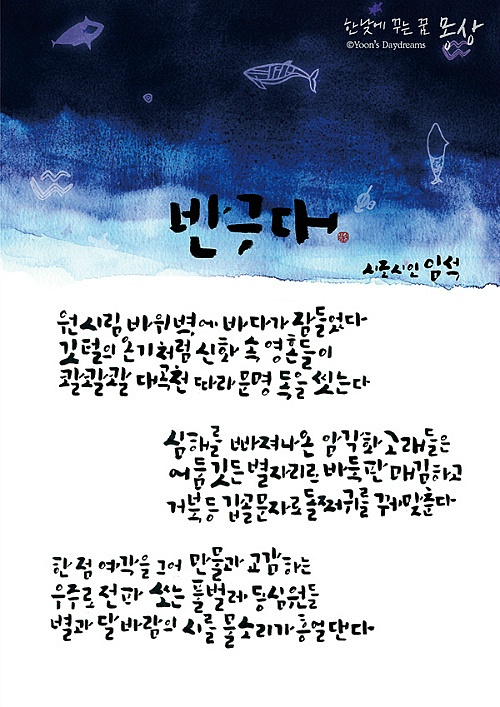 한낮에 꾸는 꿈 몽상
©Yoon's Daydreams
반구대
시조시인 임석
원시림 바위벽에 바다가 잠들었다
깃털의 온기처럼 신화 속 영혼들이
콸콸콸콸 대곡천 따라 문명 독을 씻는다
심해를 빠져나온 암각화 고래들은
어둠 깃든 별자리로 바둑판 매김하고
거북등 갑골문자로 돌쩌귀를 꿰맞춘다
한 점 여백을 그어 만물과 교감하는
우주로 전파 쏘는 풀벌레 동심원들
별과 달 바람의 시를 물소리가 흥얼댄다